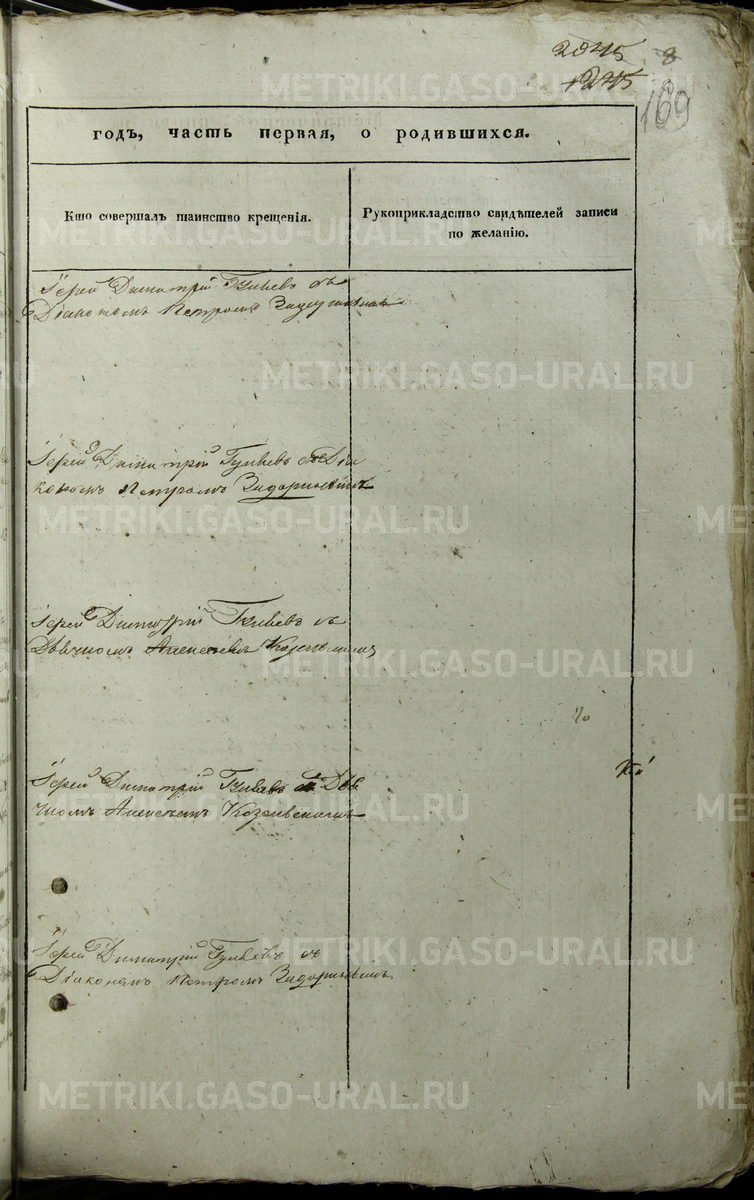 2045 8
1245
169
годъ, часть первая, о родившихся.
Кто совершалъ таинство крещенія.
Рукоприкладство свидѣтелей записи
по желанію.
Іерей Димитрій Гуляевъ съ
Діакономъ Петромъ
Іерей Димитрій Гуляевъ съ Діа
кономъ Петромъ Задоринымъ
Іерей Димитрій Гуляевъ съ
Дьячкомъ Алексѣемъ
Іерей Димитрій Гуляевъ съ Дья
чкомъ Алексѣемъ Козельскимъ
Іерей Димитрій Гуляевъ съ
Діакономъ Петромъ Задоринымъ
METRIKI.GASO-URAL.RU